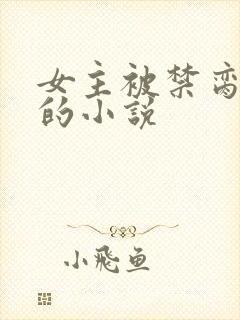 女主被禁脔
的小说
小飛鱼